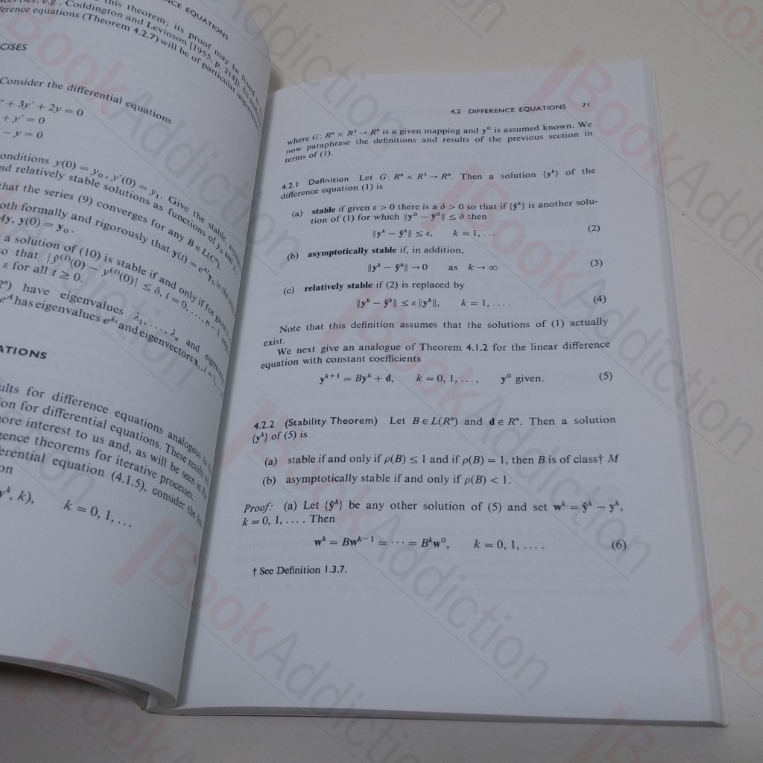 CE EQUATIONS
this theorem; its proof may be found
, e.g., Coddington and Levinson [1955, p. 314]
ference equations (Theorem 4.2.7) will be of particular
CISES
Consider the differential equations
″ + 3y′ + 2y = 0
+ y′ = 0
− y = 0
onditions y(0) = y₀, y′(0) = y₁. Give the stable,
nd relatively stable solutions as functions of y₀ and
hat the series (9) converges for any B ∈ L(Cⁿ).
oth formally and rigorously that y(t) = e
Ay, y(0) = y₀.
a solution of (10) is stable if and only if for given
so that | ≤ δ, i = 0, . . . , n − 1
ε for all t ≥ 0.
ⁿ) have eigenvalues λ₁, . . . , λₙ and
has eigenvalues and eigenvectors
ATIONS
ults for difference equations analogous
on for differential equations. These results
ore interest to us and, as will be seen in
gence theorems for iterative processes.
erential equation (4.1.5), consider the
on
yᵏ, k), k = 0, 1, . . .
4.2 DIFFERENCE EQUATIONS 71
where G: Rⁿ × R¹ → Rⁿ is a given mapping and y⁰ is assumed known. We
now paraphrase the definitions and results of the previous section in
terms of (1).
4.2.1 Definition Let G: Rⁿ × R¹ → Rⁿ. Then a solution {yᵏ} of the
difference equation (1) is
(a) stable if given ε > 0 there is a δ > 0 so that if {ŷᵏ} is another solu-
tion of (1) for which ‖y⁰ − ŷ⁰‖ ≤ δ then
‖yᵏ − ŷᵏ‖ ≤ ε, k = 1, . . . (2)
(b) asymptotically stable if, in addition,
‖yᵏ − ŷᵏ‖ → 0 as k → ∞ (3)
(c) relatively stable if (2) is replaced by
‖yᵏ − ŷᵏ‖ ≤ ε ‖yᵏ‖, k = 1, . . . . (4)
Note that this definition assumes that the solutions of (1) actually
exist.
We next give an analogue of Theorem 4.1.2 for the linear difference
equation with constant coefficients
yᵏ⁺¹ = Byᵏ + d, k = 0, 1, . . . , y⁰ given. (5)
4.2.2 (Stability Theorem) Let B ∈ L(Rⁿ) and d ∈ Rⁿ. Then a solution
{yᵏ} of (5) is
(a) stable if and only if ρ(B) ≤ 1 and if ρ(B) = 1, then B is of class† M
(b) asymptotically stable if and only if ρ(B) < 1.
Proof: (a) Let {ŷᵏ} be any other solution of (5) and set wᵏ = ŷᵏ − yᵏ,
k = 0, 1, . . . . Then
wᵏ = Bwᵏ⁻¹ = · · · = Bᵏw⁰, k = 0, 1, . . . . (6)
† See Definition 1.3.7.
BookAddiction